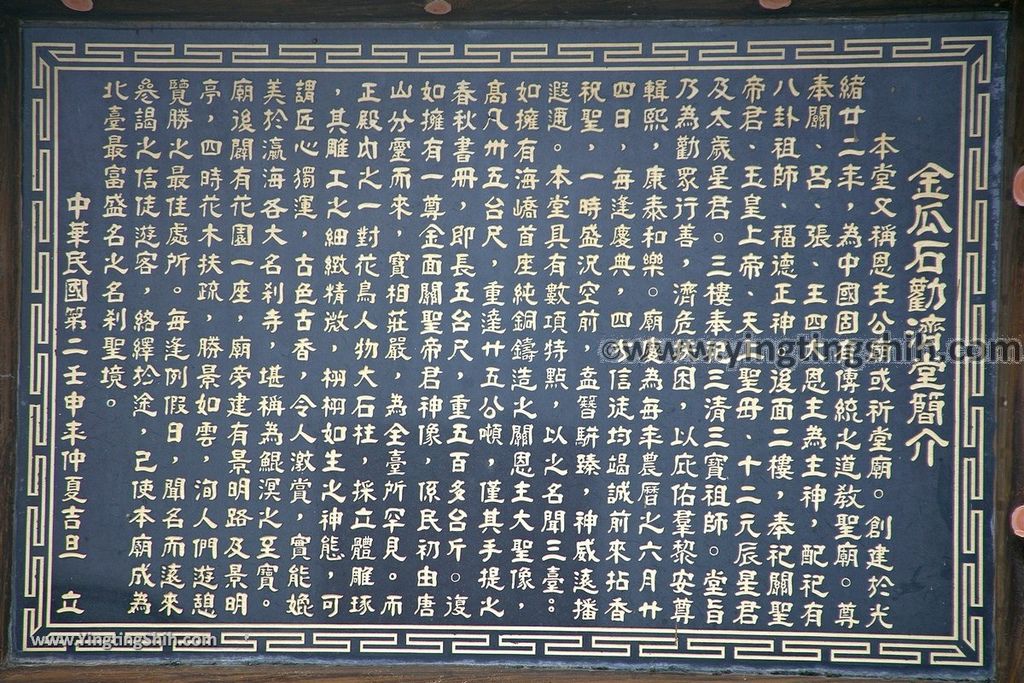 金瓜石勸濟堂簡介
本堂又稱恩主公廟或祈堂廟。創建於光
緒廿二年，為中國固有傳統之道教聖廟。尊
奉關、呂、張、王四大恩主為主神，配祀有
八卦祖師、福德正神；後面二樓，奉祀關聖
帝君、玉皇上帝、天上聖母、十二元辰星君
及太歲星君。三樓奉祀三清三寶祖師。堂旨
乃為勸眾行善，濟危扶困，以庇佑羣黎安尊
輯熙，康泰和樂。廟慶為每年農曆之六月廿
四日，每逢慶典，四方信徒均竭誠前來拈香
祝聖，一時盛況空前，盍簪駢臻，神威遠播
遐邇。本堂具有數項特點，以之名聞三臺：
如擁有海嶠首座純銅鑄造之關恩主大聖像，
高凡卅五台尺，重達廿五公噸，僅其手提之
春秋書冊，即長五台尺，重五百多台斤。復
如擁有一尊金面關聖帝君神像，係民初由唐
山分靈而來，寶相莊嚴，為全臺所罕見。而
正殿內之一對花鳥人物大石柱，採立體雕琢
，其雕工之細緻精微，栩栩如生之神態，可
謂匠心獨運，古色古香，令人激賞，實能媲
美於瀛海各大名剎寺，堪稱為鯤溟之至寶。
廟後闢有花園一座，廟旁建有景明路及景明
亭，四時花木扶疏，勝景如雲，洵人們遊憩
覽勝之最佳處所。每逢例假日，聞名而遠來
參謁之信徒遊客，絡繹於途，已使本廟成為
北臺最富盛名之名剎聖境。
中華民國第二壬申年仲夏吉旦 立
©www.yingtingshih.com
www.YingtingShih.com